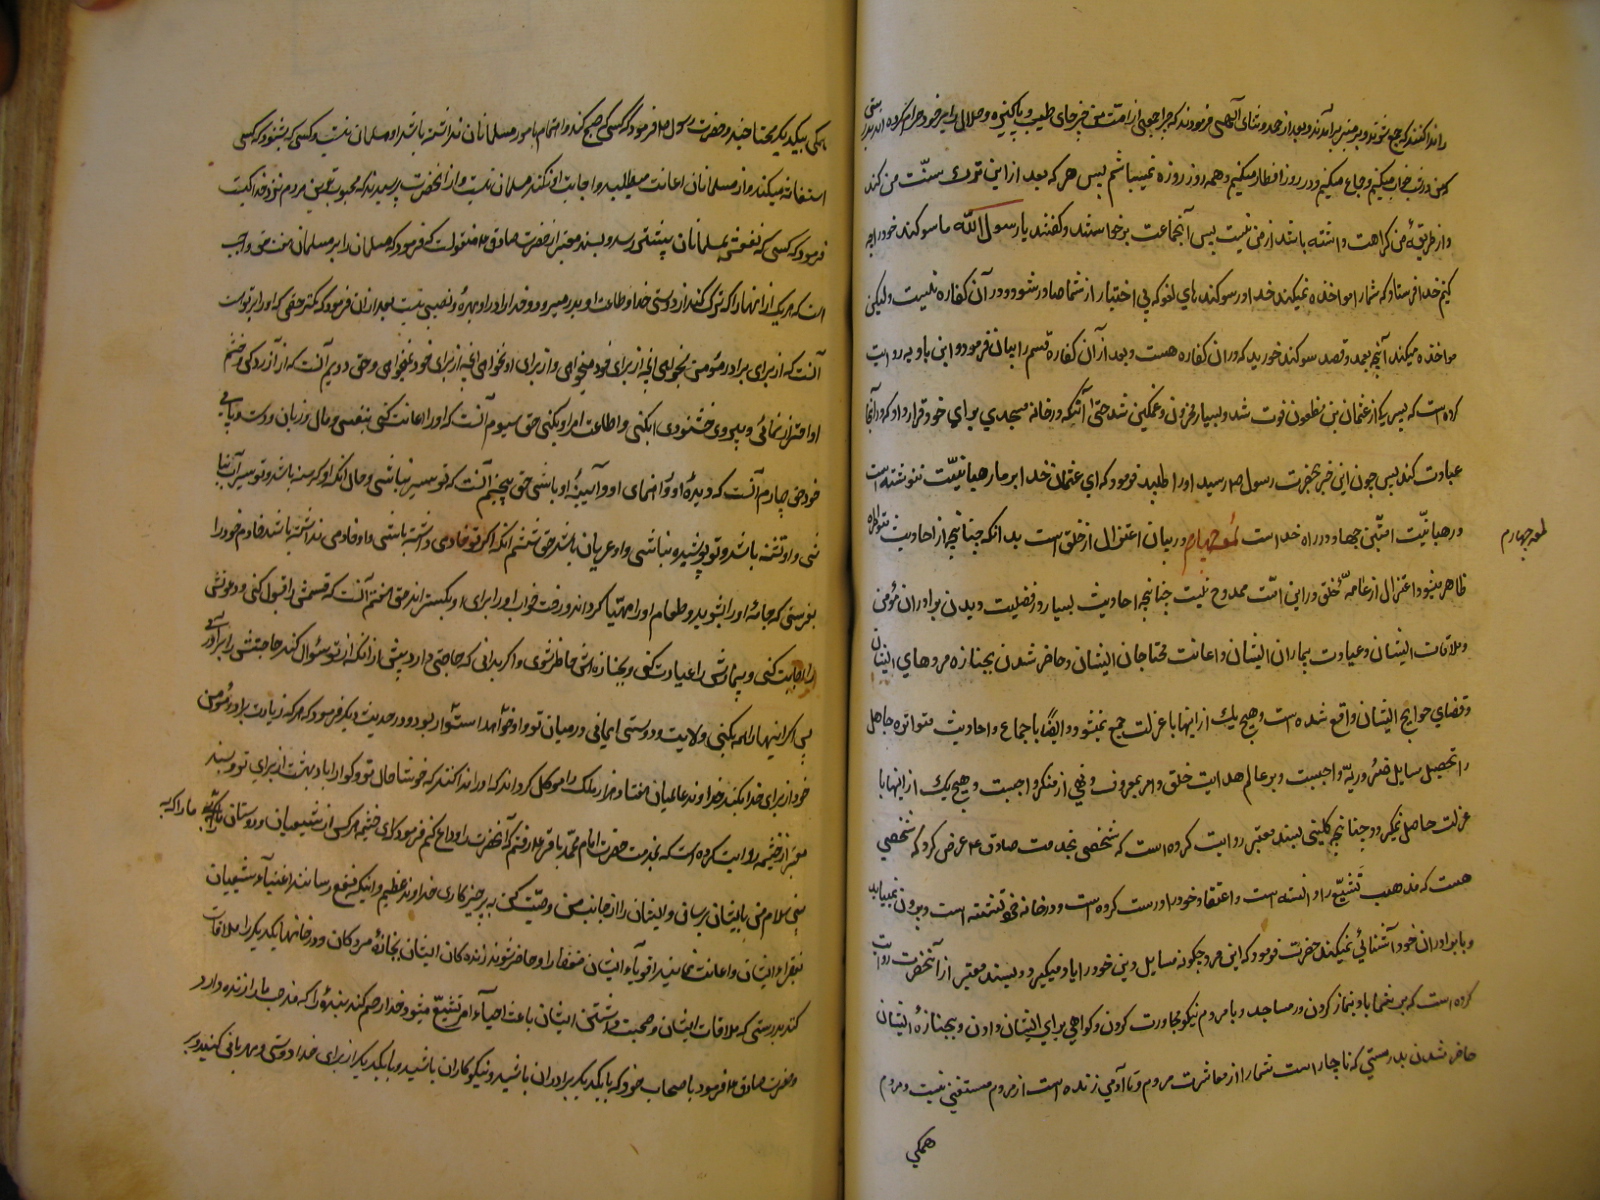 را ندا کنند که جمع شوند و بر منبر برآمدند و بعد از حمد و ثنای الهی فرمودند که چرا جمعی از امت من چیزهای طیب و پاکیزه و حلال را بر خود حرام کرده‌اند بدرستی
که من در شب خواب میکنم و جماع میکنم و در روز افطار میکنم و همه روز روزه نمیباشم پس هر که بعد از این ترک سنّت من کند
و از طریقۀ من کراهت داشته باشد از من نیست پس آنجماعت برخواستند و گفتند یا رسول اللّه ما سوگند خورده‌ایم
خدا فرستاد که شما را مواخذه نمیکند خدا در سوکندهای لغو که بی اختیار از شما صادر شود و در آن کفاره نیست ولیکن
مواخذه میکند آنچه بعمد و قصد سوکند خورید که در آن کفاره هست و بعد از آن کفاره قسم را بیان فرمود و ابن بابویه روایت
کرده است که پسری از عثمان بن مظعون فوت شد و بسیار محزون و غمکین شد حتی آنکه در خانه مسجدی برای خود قرار داد که در آنجا
عبادت کند پس چون این خبر بحضرت رسول ص رسید او را طلبید فرمود که ای عثمان خدا بر ما رهبانیّت ننوشته است
و رهبانیّت امّت من جهاد در راه خداست لمعه چهارم در بیان اعتزال از خلق است بدانکه چنانچه از احادیث متواتره
لمعه چهارم
ظاهر میشود اعتزال از عامهّ خلق در این امّت ممدوح نیست چنانچه احادیث بسیار در فضیلت دیدن برادران مؤمن
و ملاقات ایشان و عیادت بیماران ایشان و اعانت محتاجان ایشان و حاضر شدن بجنازه مردهای ایشان
و قضای حوایج ایشان واقع شده است و هیچ یک از اینها با عزلت جمع نمیشود و ایضًا باجماع و احادیث متواتره جاهل
را تحصیل مسایل ضروریّه واجبست و بر عالم هدایت خلق و امر بمعروف و نهی از منکر واجبست و هیچ یک از اینها با
عزلت حاصل نمیکردد چنانچه کلینی بسند معتبر روایت کرده است که شخصی بخدمت صادق ع عرض کرد که شخصی
هست که مذهب تشیّع را دانسته است و اعتقاد خود را درست کرده است و در خانه خود نشسته است و بیرون نمییاید
و با برادران خود آشنائی نمیکند حضرت فرمود که این مرد چکونه مسایل دین خود را یاد میکیرد و بسند معتبر از آنحضرت روایت
کرده است که بر شما باد بنماز کردن در مساجد و با مردم نیکو مجاورت کردن و کواهی برای ایشان دادن و بجنازۀ ایشان
حاضر شدن بدرستی که ناچار است شما را از معاشرت مردم و تا آدمی زنده است از مردم مستغنی نیست و مردم
همکی
همکی بیکدیکر محتاجند و حضرت رسول ص فرمود که کسی که صبح کند و اهتمام بامور مسلمانان نداشته باشد او مسلمان نیست و کسی که بشنود که کسی
استغاثه میکند و از مسلمانان اعانت میطلبد و اجابت او نکند مسلمان نیست و از آنحضرت پرسیدند که محبوبترین مردم نزد خدا کیست
فرمود که کسی که نفعش بمسلمانان بیشتر رسد و بسند معتبر از حضرت صادق ع منقولست که فرمود که مسلمان را بر مسلمان هفت حق واجب
است که هر یک از اینها را که ترک کند از دوستی خدا و طاعت او بدر میرود و خدا را در او بهره و نصیبی نیست بعد از آن فرمود که کمتر حقی که او را بر تو است
آنست که از برای برادر مؤمن بخواهی آنچه از برای خود میخواهی و از برای او نخواهی آنچه از برای خود نمیخواهی و حق دویم آنست که از آزردکی و خشم
او احتراز نمائی و پیروی خشنودی او بکنی و اطاعت امر او بکنی حق سیوم آنست که او را اعانت کنی بنفس و مال و زبان و دست و پای
خود حق چهارم آنست که دیدۀ او و راهنمای او و آیینۀ او باشی حق پنجم آنست که تو سیر نباشی و حال آنکه او کرسنه باشد و تو سیرآب نباشی
و او تشنه باشد و تو پوشیده نباشی و او عریان باشد حق ششم آنکه اگر تو خادمی داشته باشی و او خادمی نداشته باشد خادم خود را
بفرستی که جامۀ او را بشوید و طعام او را مهیّا کرداند و رخت خواب او را برای او بکستراند حق هفتم آنست که قسمش را قبول کنی و دعوتش
را اجابت کنی و بیمارش را عیادت کنی و بجنازه‌اش حاضر شوی و اگر بدانی که حاجتی دارد پیش از آنکه از تو سئوال کند حاجتش را برآوری
پس اگر اینها را همه بکنی ولایت و دوستی ایمانی در میان تو و او خواهد استوار بود و در حدیث دیکر فرمود که هر که زیارت برادر مؤمن
خود از برای خدا بکند خداوند عالمیان هفتاد هزار ملک را موکل کرداند که او را ندا کنند که خوشا حال تو و کوارا باد بهشت از برای تو و بسند
معتبر از خثیمه روایت کرده است که بخدمت حضرت امام محمّد باقر ع رفتم که آنحضرت را وداع کنم فرمود که ای خثیمه هر کس از شیعیان و دوستان ما را که
ببینی سلام من بایشان برسان و ایشان را از جانب من وصیّت کن به پرهیزکاری خداوند عظیم و اینکه نفع رسانند اغنیآء شیعیان
بفقرآء ایشان و اعانت نمایند اقویآء ایشان ضعفا را و حاضر شوند زندکان ایشان بجنازۀ مردکان و در خانها یکدیکر را ملاقات
کنند بدرستی که ملاقات ایشان و صحبت داشتن ایشان باعث احیآء امر تشیّع میشود خدا رحم کند بندۀ را که مذهب ما را زنده دارد
و حضرت صادق ع فرمود باصحاب خود که با یکدیکر برادران باشید و نیکوکاران باشید و با یکدیکر از برای خدا دوستی و مهربانی کنید و بر